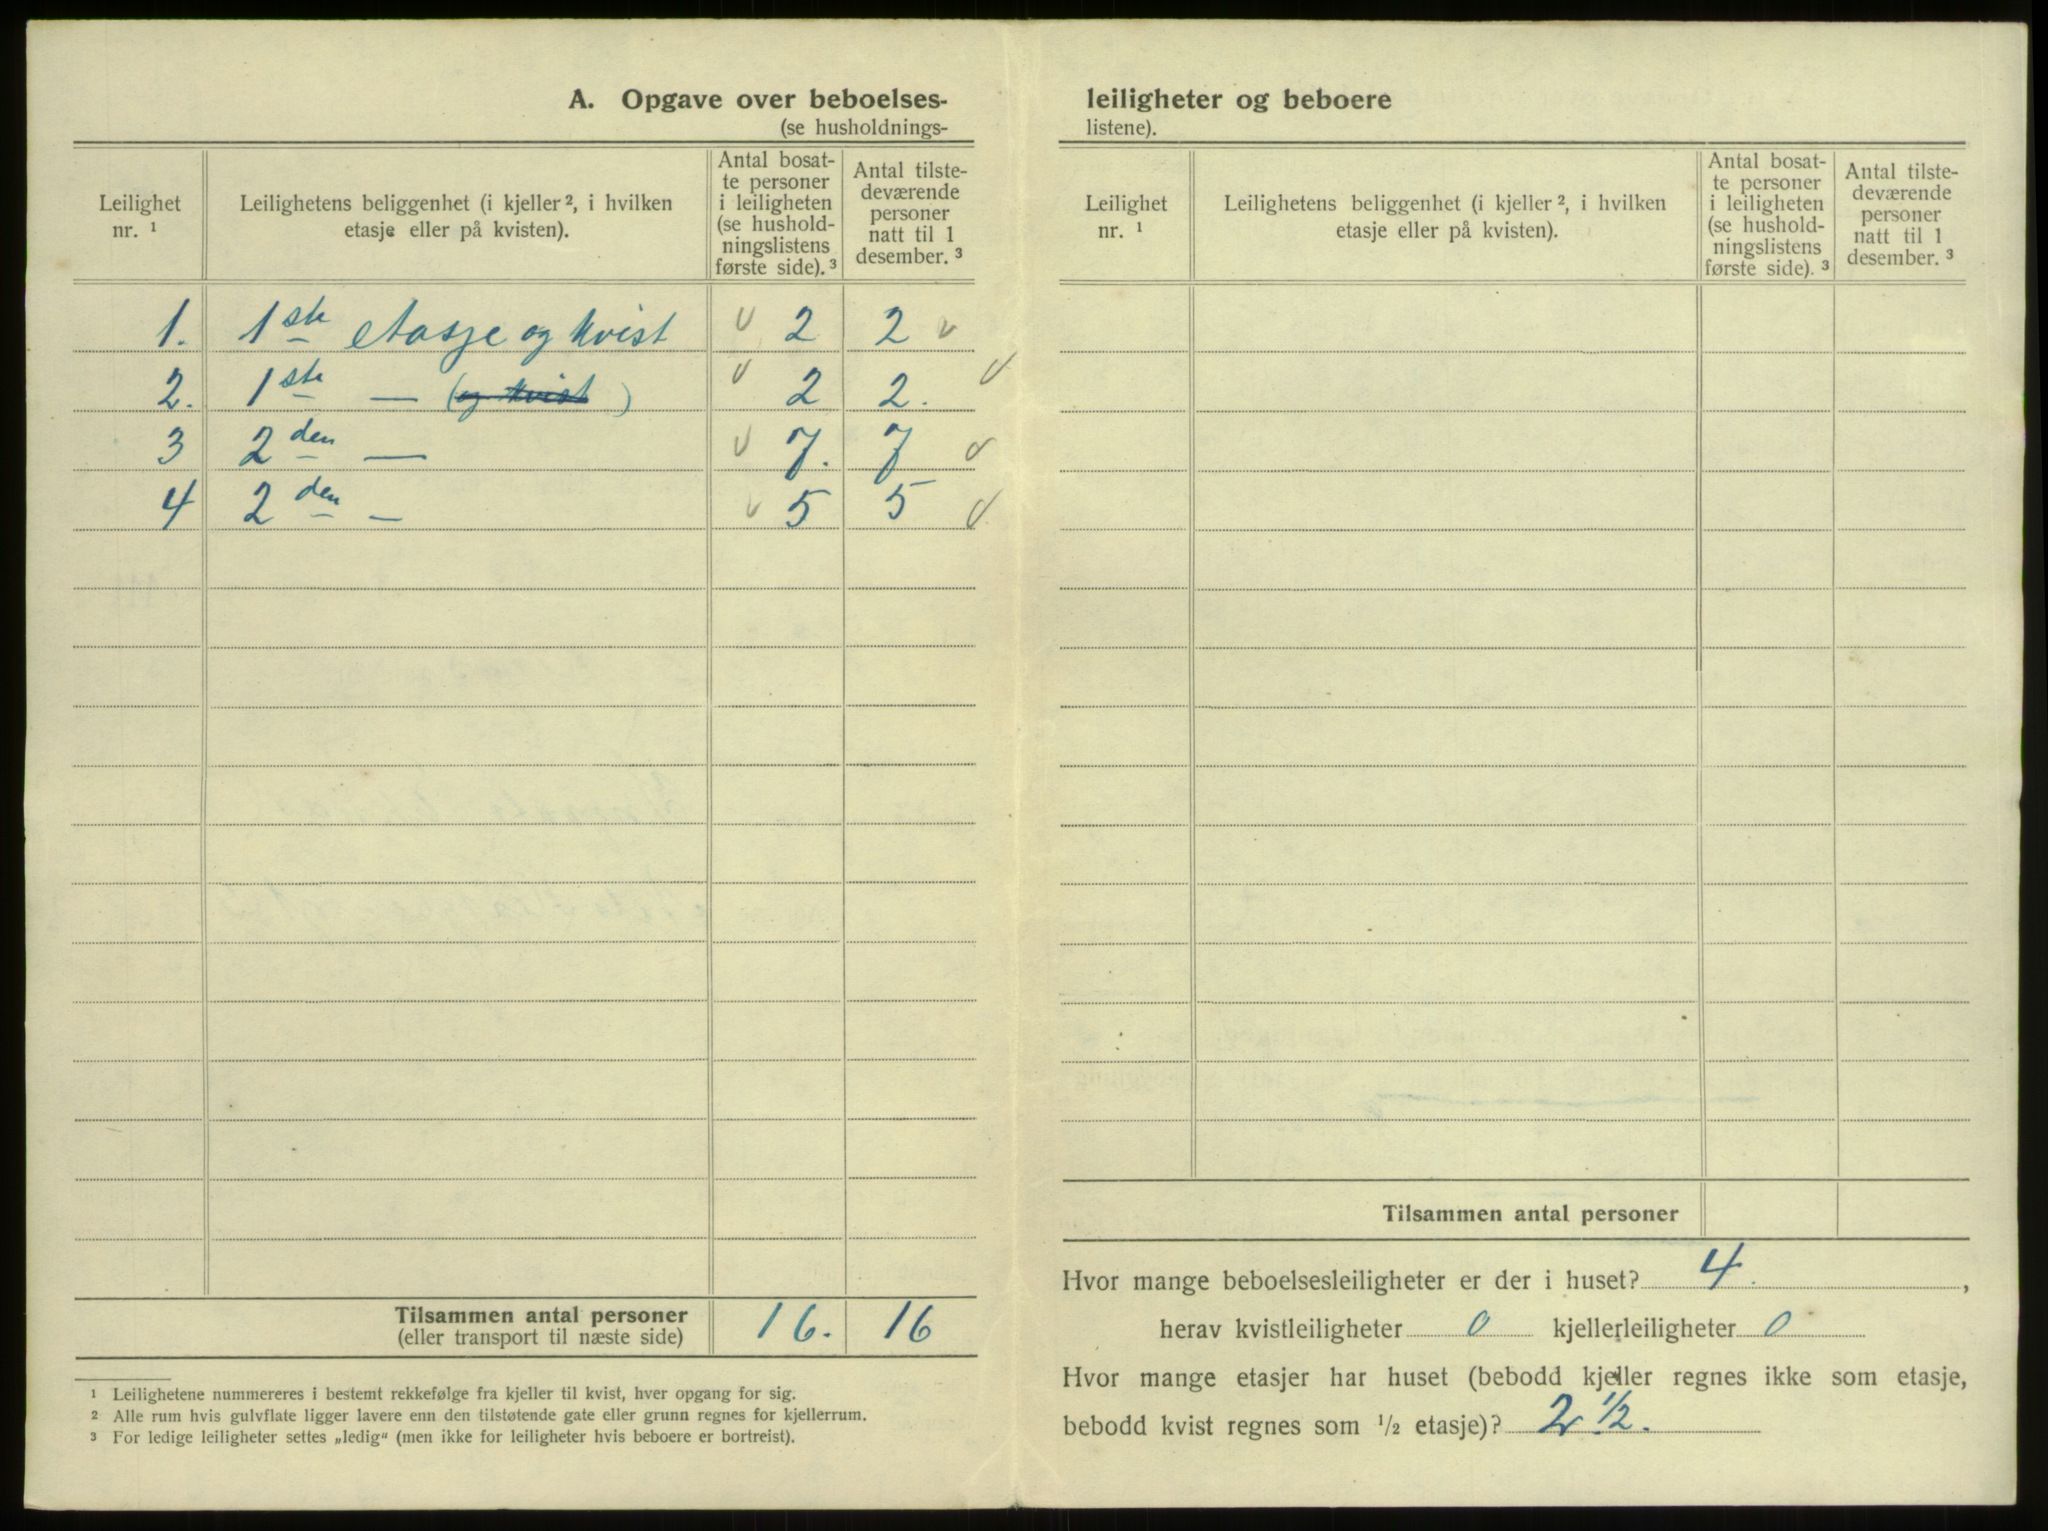 A. Opgave over beboelses-
(se husholdnings-
Leilighet nr. ¹
Leilighetens beliggenhet (i kjeller ², i hvilken etasje eller på kvisten).
Antal bosat-
te personer
i leiligheten
(se hushold-
ningslistens
første side). ³
Antal tilste-
deværende
personer
natt til 1
desember. ³
1. 1ste etasje og kvist 2 2
2. 1ste — (og kvist) 2 2.
3 2den — 7. 7
4 2den — 5 5
Tilsammen antal personer 16. 16
(eller transport til næste side)
¹ Leilighetene nummereres i bestemt rekkefølge fra kjeller til kvist, hver opgang for sig.
² Alle rum hvis gulvflate ligger lavere enn den tilstøtende gate eller grunn regnes for kjellerrum.
³ For ledige leiligheter settes „ledig“ (men ikke for leiligheter hvis beboere er bortreist).
leiligheter og beboere
listene).
Leilighet nr. ¹
Leilighetens beliggenhet (i kjeller ², i hvilken etasje eller på kvisten).
Antal bosat-
te personer
i leiligheten
(se hushold-
ningslistens
første side). ³
Antal tilste-
deværende
personer
natt til 1
desember. ³
Tilsammen antal personer
Hvor mange beboelsesleiligheter er der i huset? 4. ,
herav kvistleiligheter 0 kjellerleiligheter 0
Hvor mange etasjer har huset (bebodd kjeller regnes ikke som etasje,
bebodd kvist regnes som ½ etasje)? 2 ½.